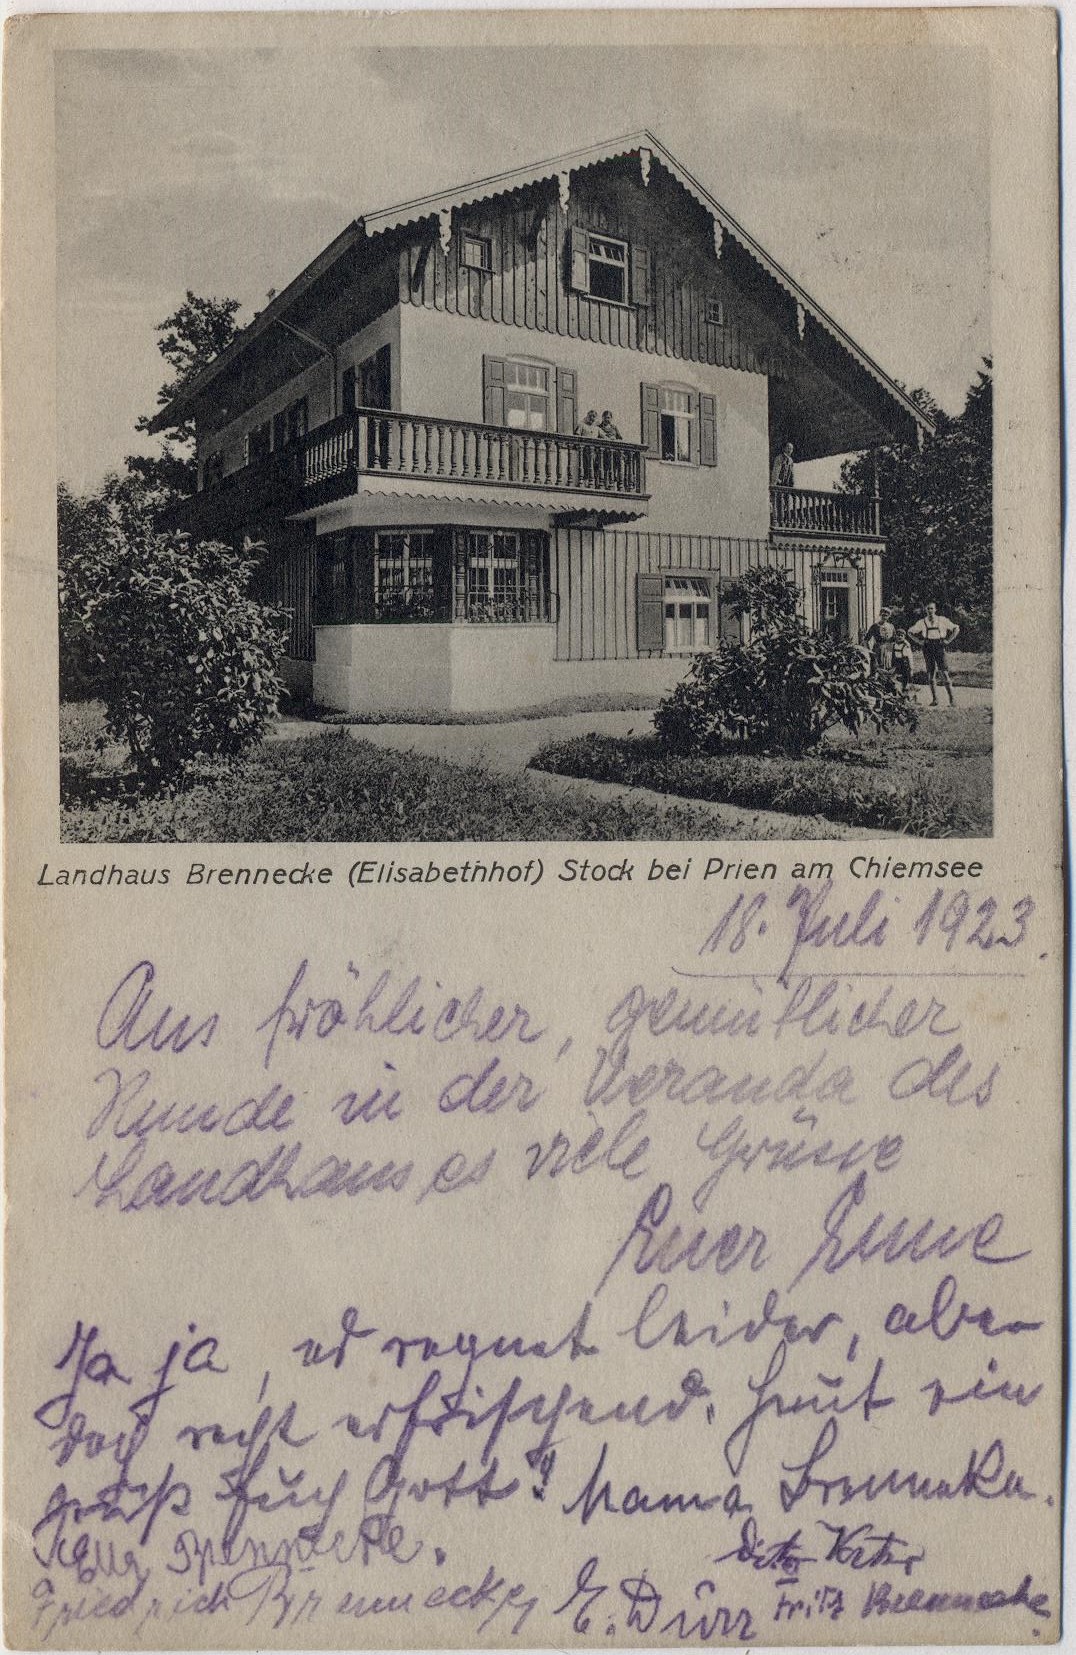 Landhaus Brennecke (Elisabethhof) Stock bei Prien am Chiemsee
18. Juli 1923.
Aus fröhlicher, gemütlicher
Runde in der Veranda des
Landhauses viele Grüsse
Euer
Ja ja, es regnet leider, aber
doch recht erfrischend. Heut ein
grüß Euch Gott! Mama Brennecke.
Ella Brennecke.
Friedrich Brennecke E. Dürr Fritz Brennecke